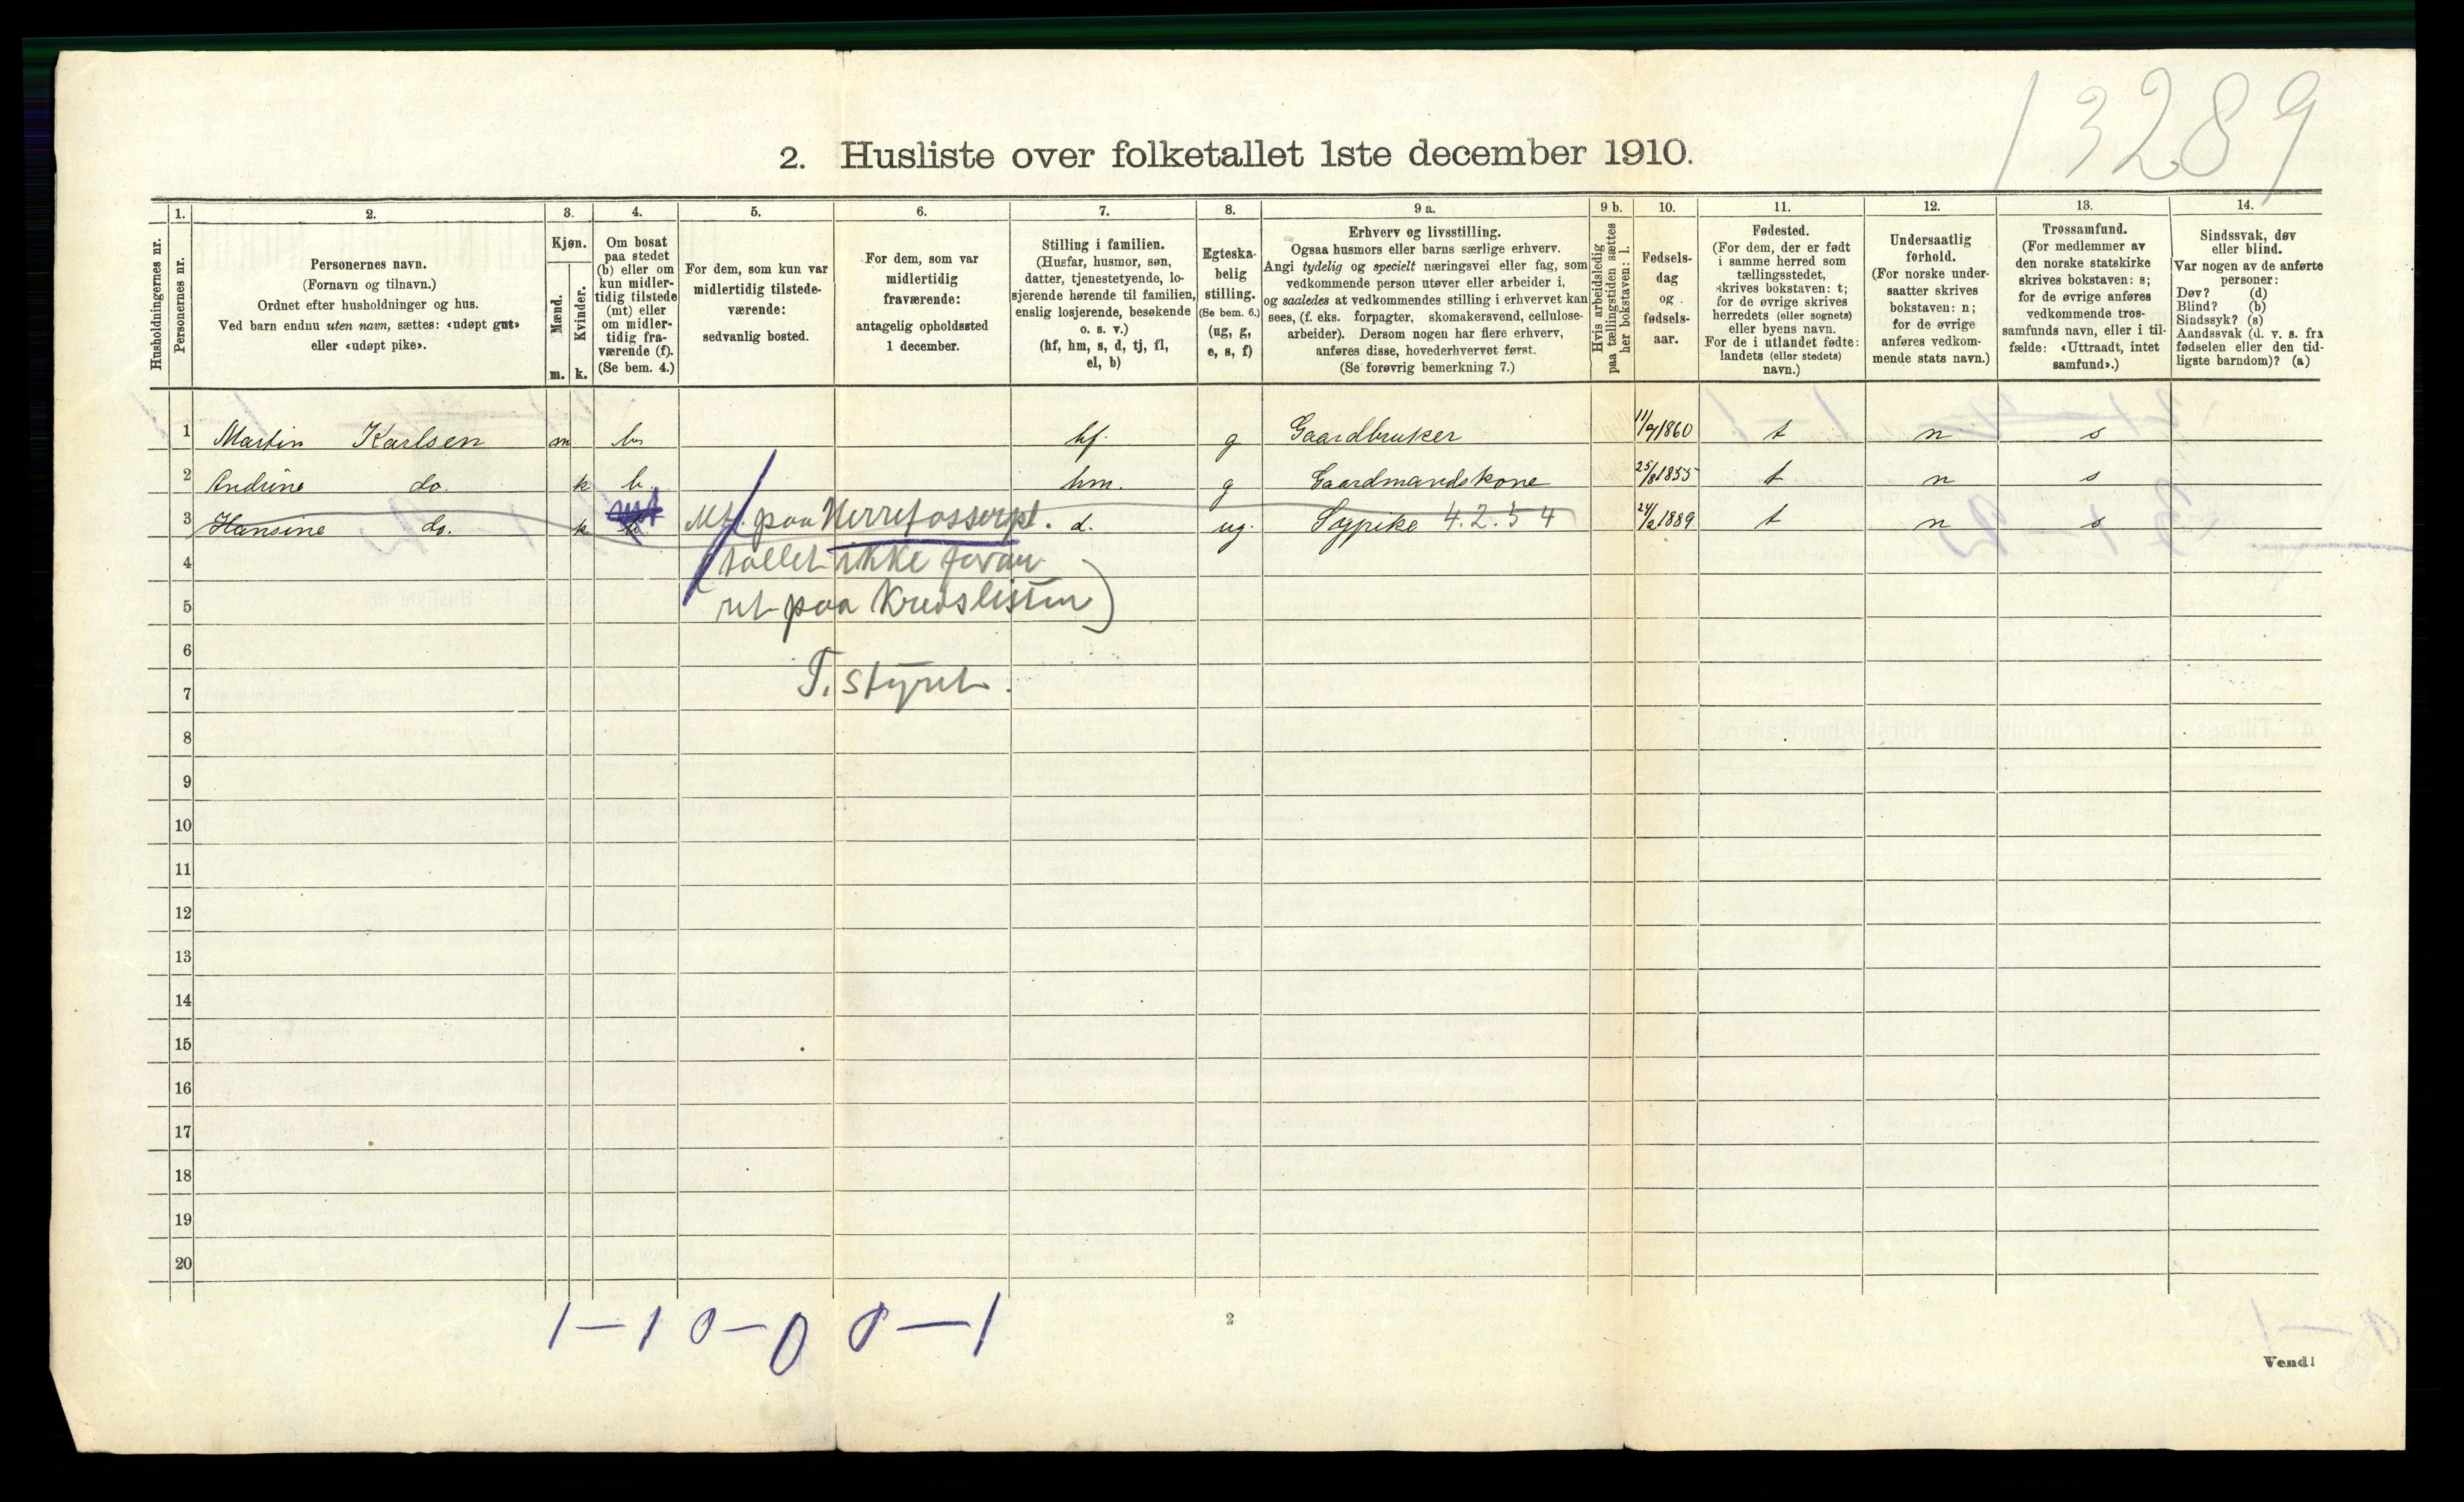 13289
2. Husliste over folketallet 1ste december 1910.
Husholdningernes nr.
1.
Personernes nr.
2.
Personernes navn.
(Fornavn og tilnavn.)
Ordnet efter husholdninger og hus.
Ved barn endnu uten navn, sættes: «udøpt gut»
eller «udøpt pike».
3.
Kjøn.
Mænd.
Kvinder.
m. k.
4.
Om bosat
paa stedet
(b) eller om
kun midler-
tidig tilstede
(mt) eller
om midler-
tidig fra-
værende (f).
(Se bem. 4.)
5.
For dem, som kun var
midlertidig tilstede-
værende:
sedvanlig bosted.
6.
For dem, som var
midlertidig
fraværende:
antagelig opholdssted
1 december.
7.
Stilling i familien.
(Husfar, husmor, søn,
datter, tjenestetyende, lo-
sjerende hørende til familien,
enslig losjerende, besøkende
o. s. v.)
(hf, hm, s, d, tj, fl,
el, b)
8.
Egteska-
belig
stilling.
(Se bem. 6.)
(ug, g,
e, s, f)
9 a.
Erhverv og livsstilling.
Ogsaa husmors eller barns særlige erhverv.
Angi tydelig og specielt næringsvei eller fag, som
vedkommende person utøver eller arbeider i,
og saaledes at vedkommendes stilling i erhvervet kan
sees, (f. eks. forpagter, skomakersvend, cellulose-
arbeider). Dersom nogen har flere erhverv,
anføres disse, hovederhvervet først.
(Se forøvrig bemerkning 7.)
9 b.
Hvis arbeidsledig
paa tællingstiden sættes
her bokstaven: l.
10.
Fødsels-
dag
og
fødsels-
aar.
11.
Fødested.
(For dem, der er født
i samme herred som
tællingsstedet,
skrives bokstaven: t;
for de øvrige skrives
herredets (eller sognets)
eller byens navn.
For de i utlandet fødte:
landets (eller stedets)
navn.)
12.
Undersaatlig
forhold.
(For norske under-
saatter skrives
bokstaven: n;
for de øvrige
anføres vedkom-
mende stats navn.)
13.
Trossamfund.
(For medlemmer av
den norske statskirke
skrives bokstaven: s;
for de øvrige anføres
vedkommende tros-
samfunds navn, eller i til-
fælde: «Uttraadt, intet
samfund».)
14.
Sindssvak, døv
eller blind.
Var nogen av de anførte
personer:
Døv? (d)
Blind? (b)
Sindssyk? (s)
Aandssvak (d. v. s. fra
fødselen eller den tid-
ligste barndom)? (a)
1 Martin Karlsen m b hf. g Gaardbruker 11/7 1860 t n s
2 Andrine do. k b. hm. g Gaardmandskone 25/8 1855 t n s
3 Hansine do. k mt d. ug. Sypike 4.2.54 24/2 1889 t n s
Mt. paa
4 (tallet ikke foran
5 ret paa Kredslisten)
6
7 T. styret.
8
9
10
11
12
13
14
15
16
17
18
19
20
1-1 0-0 0-1
2
Vend!